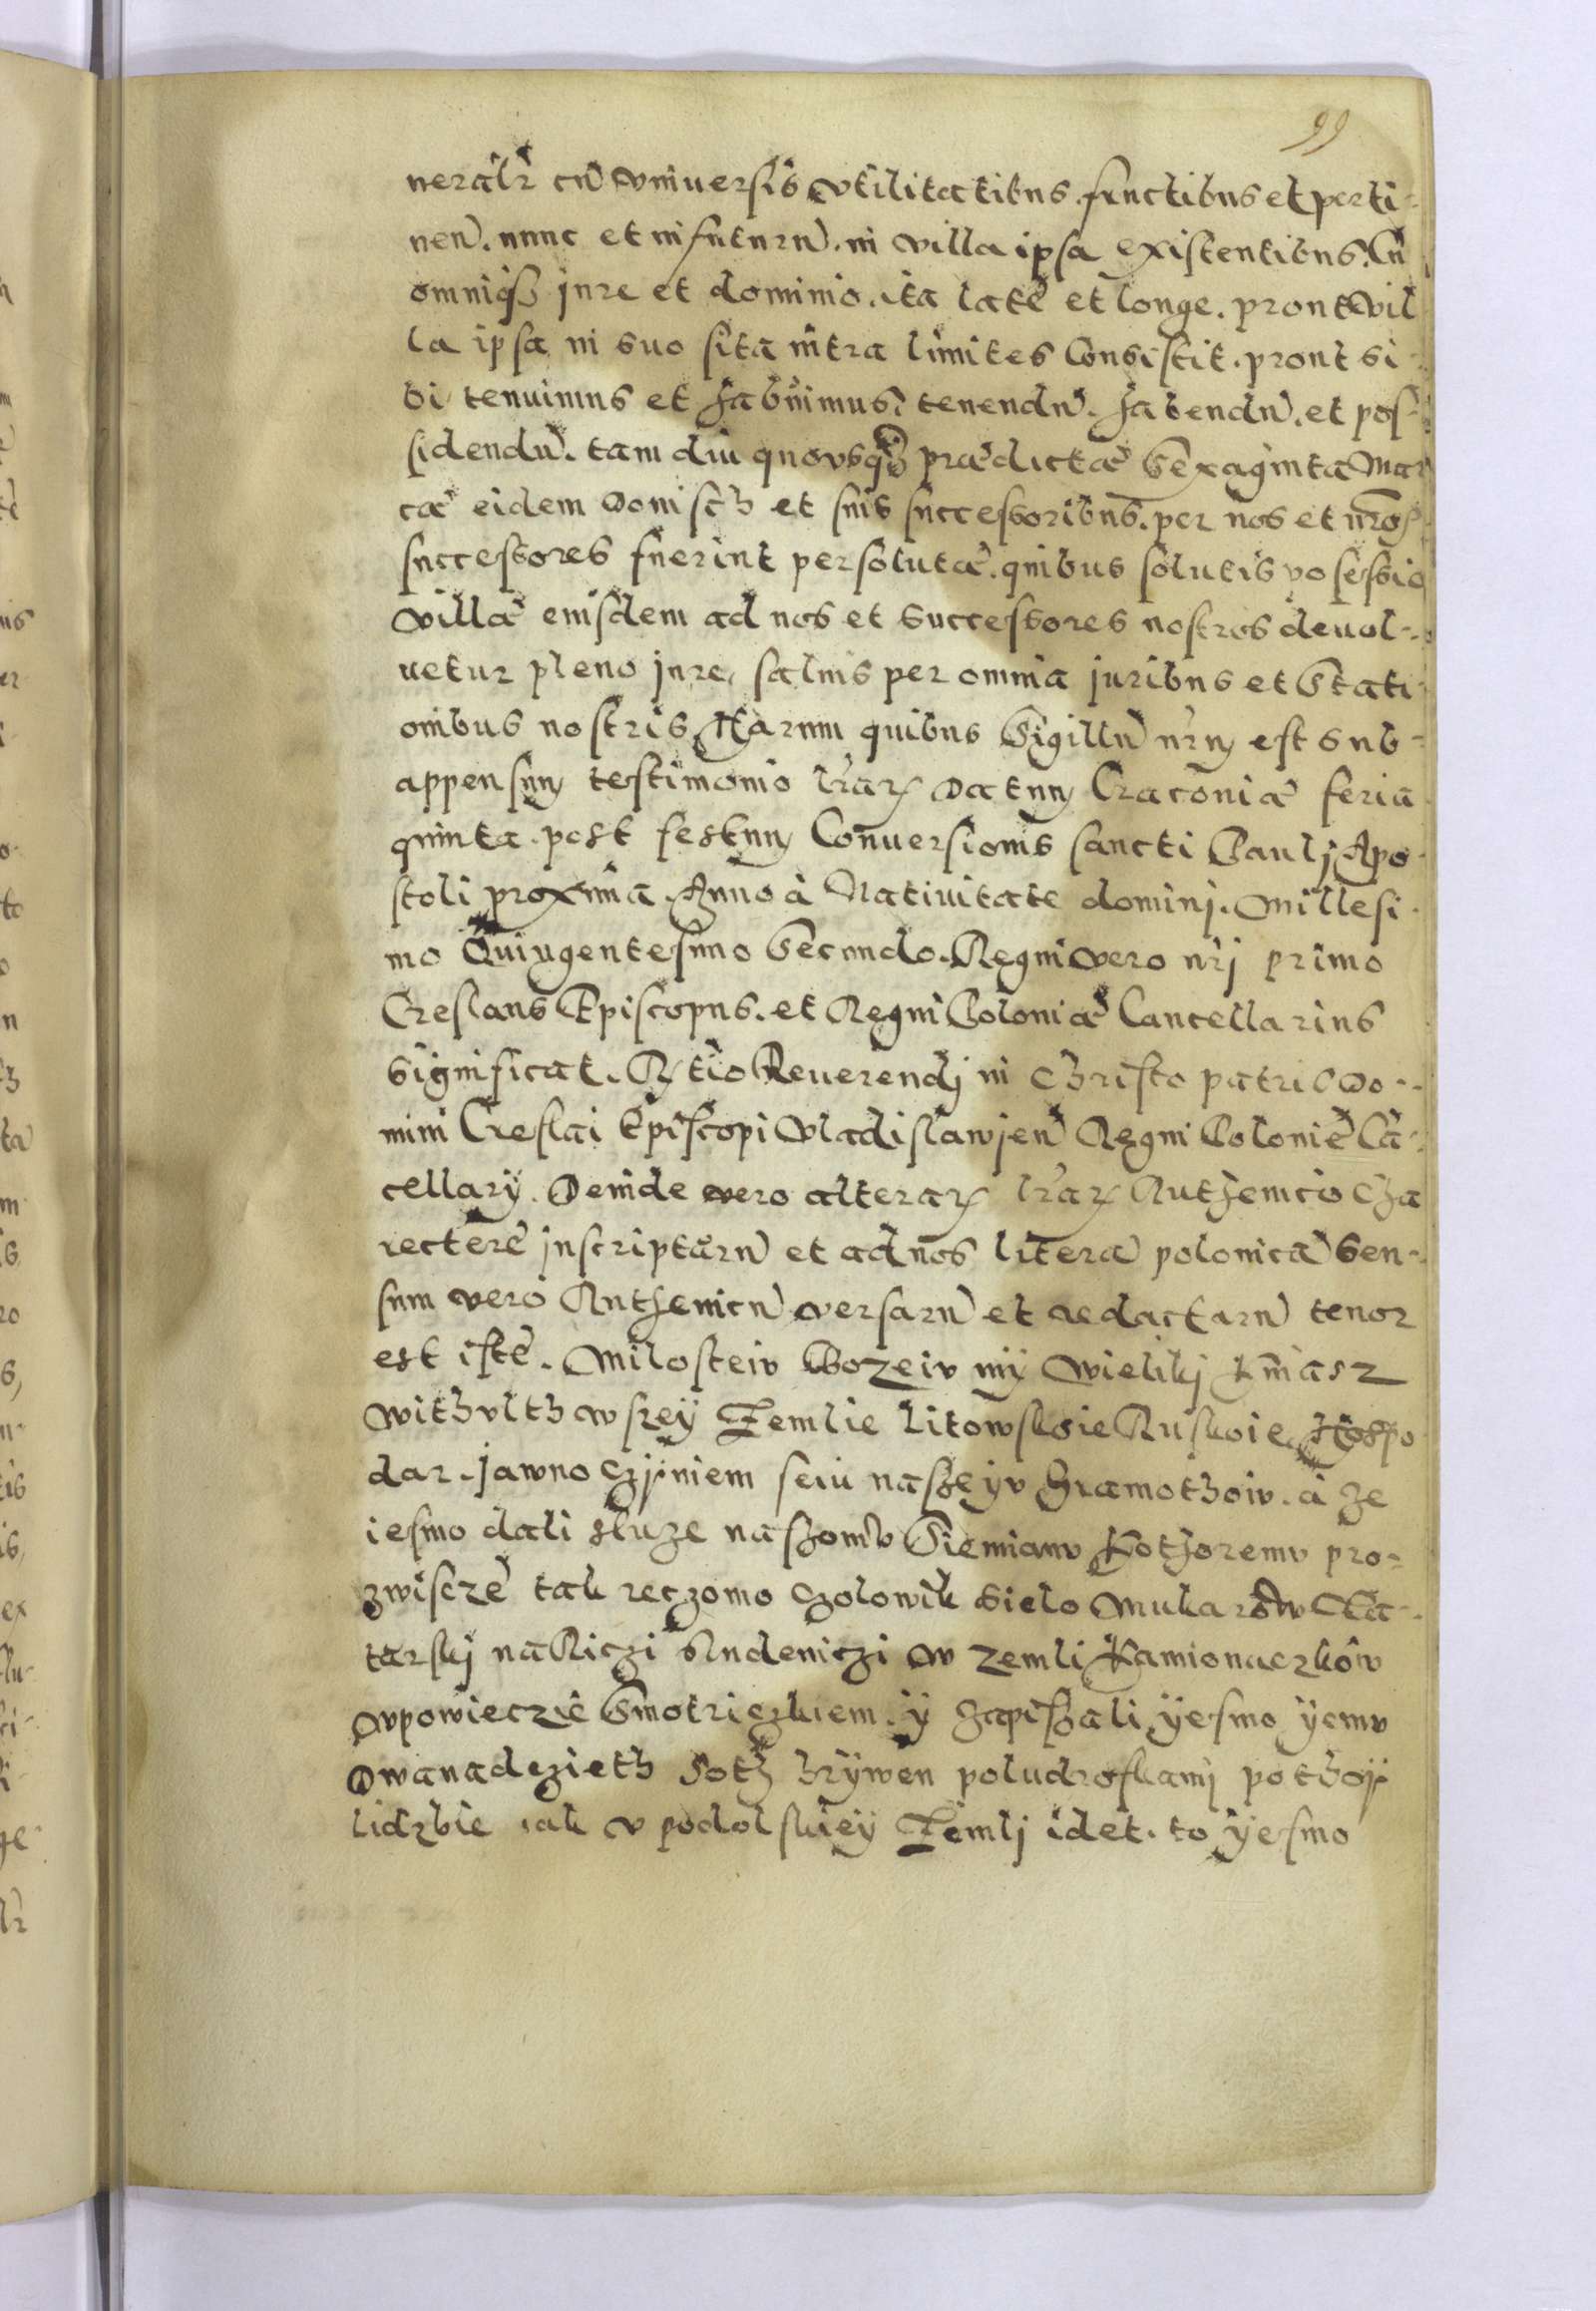 99
neralr̃ cũ vniuersis vtilitatibus. fructibus et perti-
nen̄. nunc et in futurũ. in villa ipsa existentibus. Cũ
omniq3 jure et dominio. ita late et longe. prout vil
la ipsa in suo sita intra limites Consistit. prout si-
bi tenuimus et habuimus: tenendũ. habendũ. et pos-
sidendũ. tam diu quousq3 prædictæ Sexaginta Mar
cæ eidem Donisch et suis successoribus. per nos et nr̃os
successores fuerint persolutæ. quibus solutis posessio
villæ eiusdem ad nos et successores nostros deuol-
uetur pleno jure, saluis per omnia juribus et Stati-
onibus nostris, Harum quibus Sigillũ nr̃m est sub-
appensum testimonio lr̃arum Datum Cracouiæ feria
quinta. post festum Conuersionis sancti Paulj Apo-
stoli proxima. Anno à Natiuitate dominj. Millesi-
mo Quingentesimo Secundo. Regni vero nr̃j primo
Creslaus Episcopus. et Regni Poloniæ Cancellarius
significat. Rꝛtio Reuerendj in Christo patris Do-
mini Creslai Episcopi Vladislawjen̄ Regni Polonie Cã-
cellarÿ. Deinde vero alterarum lr̃arum Ruthenico Cha
rectere jnscripturũ et ad nos litera polonica sen-
sum vero Ruthenicũ versarũ et redactarũ tenor
est iste. Milosteiv Bozeiv mÿ Wielikj Kniasz
Withvlth wszeÿ Zemlie Litowskoie Ruskoie Hospo
dar. jawno czjniem seiu naszeÿv Hramothoiv. à ze
iesmo dali sluze naszomv Siemianv kothoremv pro-
zwiscze tak reczomo czolowik Sielo Mukarow Ta-
tarskj na Riczi Studeniczi w zemli Kamionaczkow
wpowieczie Smotriczkiem. ÿ zapiszali ÿesmo ÿemv
Dwanadczieth soth hrÿwen poludroskamj pothoÿ
lidzbie iak v podolskieÿ Zemlj idet. to ÿesmo